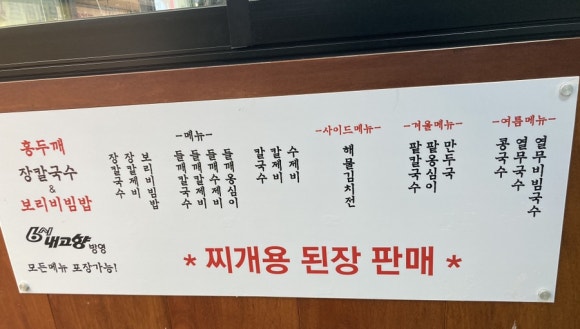 홍두깨
장칼국수
&
보리비빔밥
6시 내고향 방영
모든메뉴 포장가능!
-메뉴-
장칼국수
장칼제비
보리비빔밥
들깨칼국수
들깨칼제비
들깨수제비
들깨옹심이
칼국수
칼제비
수제비
-사이드메뉴-
해물김치전
-겨울메뉴-
팥칼국수
팥옹심이
만두국
-여름메뉴-
콩국수
열무국수
열무비빔국수
* 찌개용 된장 판매 *